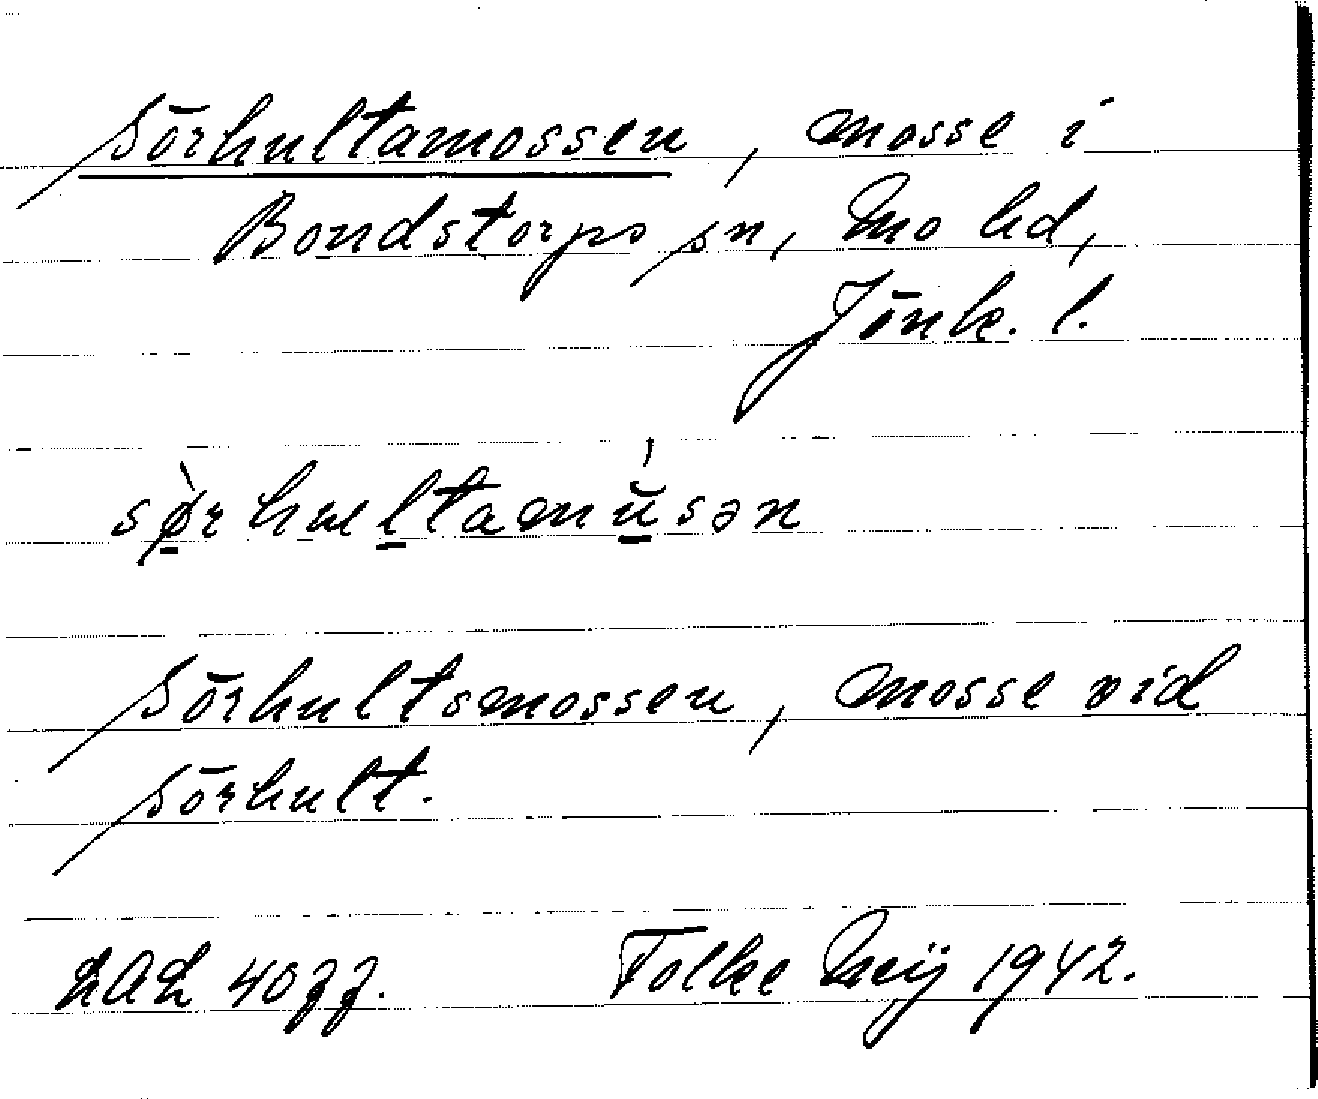 Sörhultamossen, mosse i
Bondstorps sn, Mo hd,
Jönk. l.
sø̀rhultamúsən
Sörhultsmossen, mosse vid
Sörhult.
Folke Meij 1942.